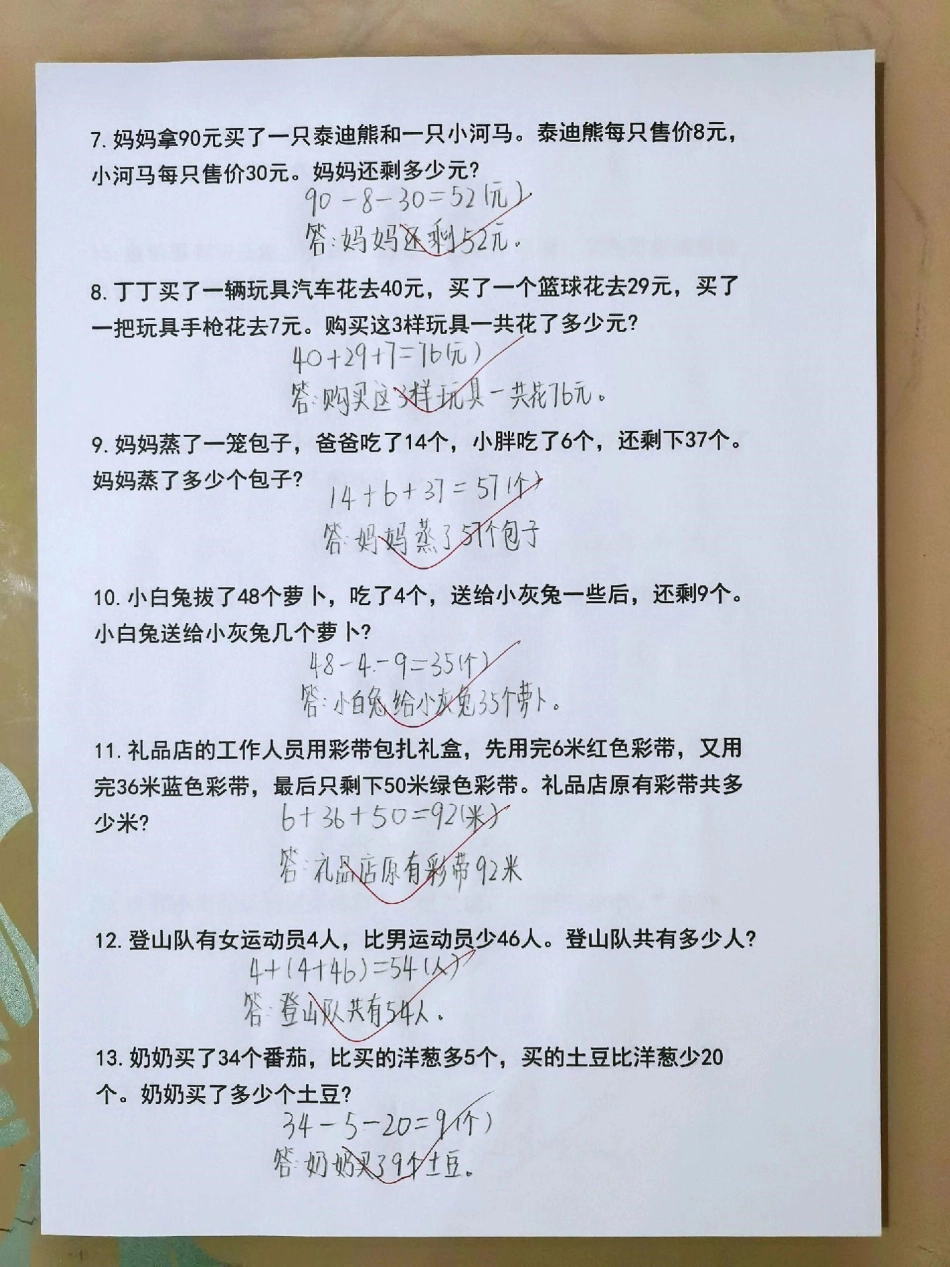 7. 妈妈拿90元买了一只泰迪熊和一只小河马。泰迪熊每只售价8元，
小河马每只售价30元。妈妈还剩多少元?
90-8-30=52(元)
答:妈妈还剩52元。
8. 丁丁买了一辆玩具汽车花去40元，买了一个篮球花去29元，买了
一把玩具手枪花去7元。购买这3样玩具一共花了多少元?
40+29+7=76(元)
答:购买这3样玩具一共花76元。
9. 妈妈蒸了一笼包子，爸爸吃了14个，小胖吃了6个，还剩下37个。
妈妈蒸了多少个包子?
14+6+37=57(个)
答:妈妈蒸了57个包子
10. 小白兔拔了48个萝卜，吃了4个，送给小灰兔一些后，还剩9个。
小白兔送给小灰兔几个萝卜?
48-4-9=35(个)
答:小白兔给小灰兔35个萝卜。
11. 礼品店的工作人员用彩带包扎礼盒，先用完6米红色彩带，又用
完36米蓝色彩带，最后只剩下50米绿色彩带。礼品店原有彩带共多
少米?
6+36+50=92(米)
答:礼品店原有彩带92米
12. 登山队有女运动员4人，比男运动员少46人。登山队共有多少人?
4+(4+46)=54(人)
答:登山队共有54人。
13. 奶奶买了34个番茄，比买的洋葱多5个，买的土豆比洋葱少20
个。奶奶买了多少个土豆?
34-5-20=9(个)
答:奶奶买了9个土豆。